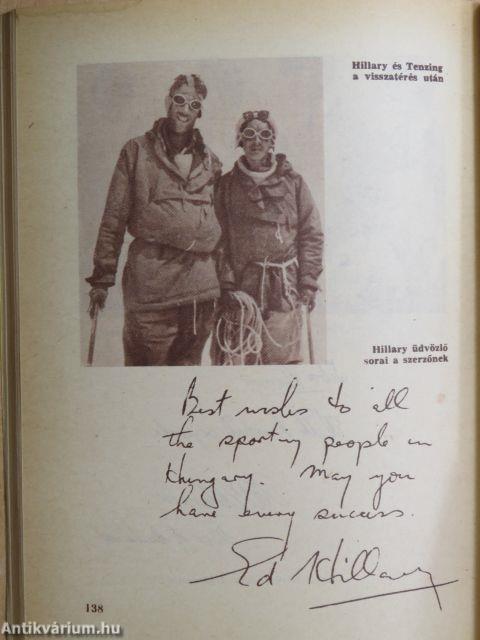 Hillary és Tenzing
a visszatérés után
Hillary üdvözlő
sorai a szerzőnek
Best wishes to all
the sporting people in
Hungary. May you
have every success.
Ed Hillary
138
Antikvárium.hu